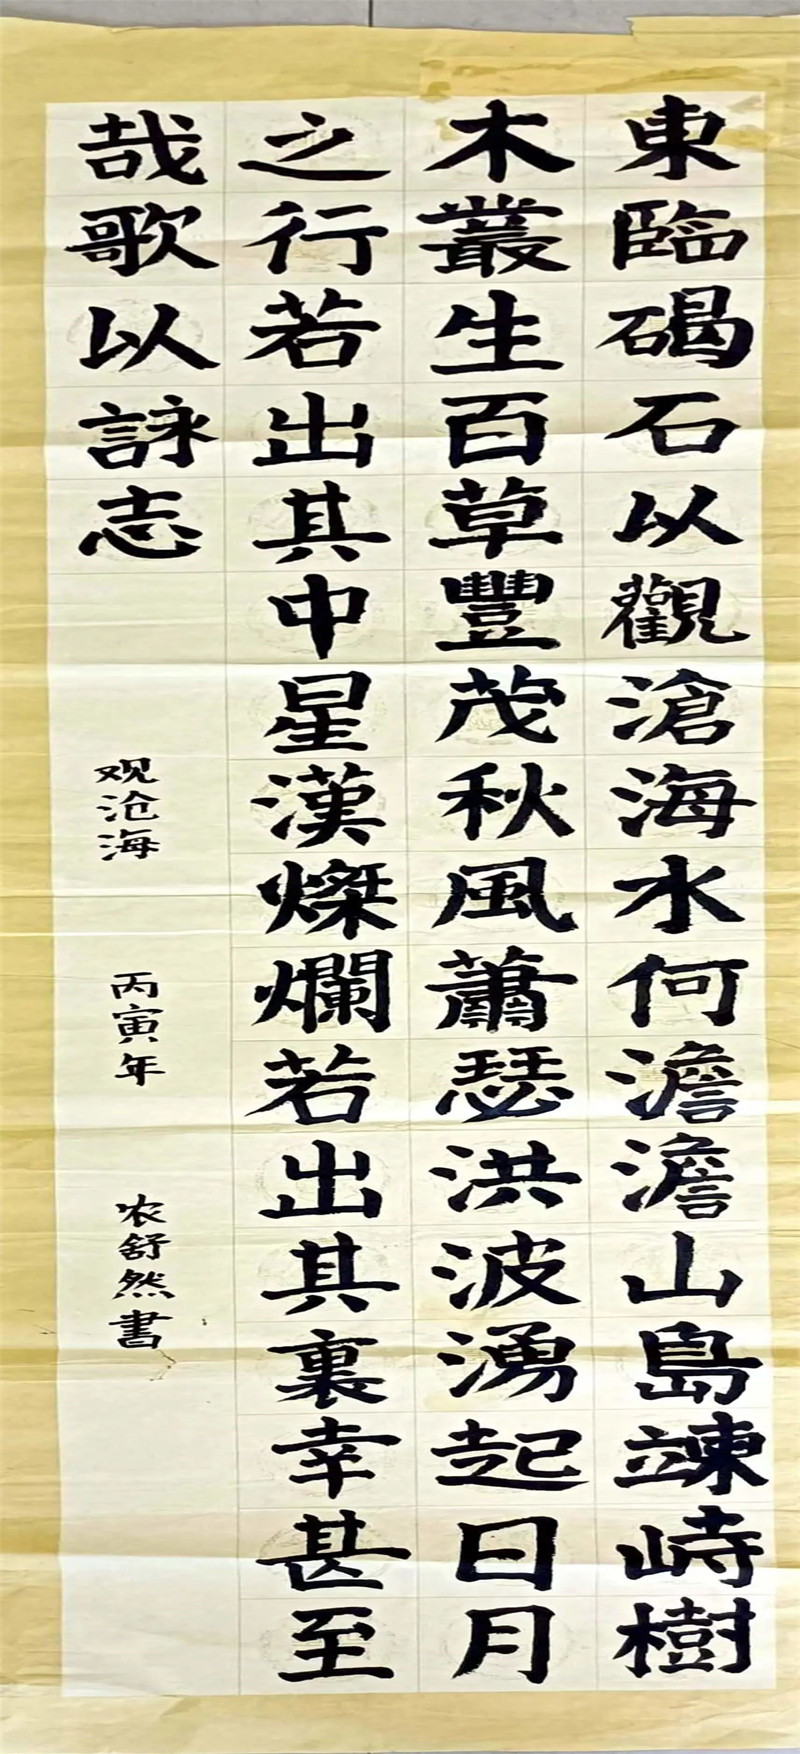 東臨碣石以觀滄海水何澹澹山島竦峙樹
木叢生百草豐茂秋風蕭瑟洪波湧起日月
之行若出其中星漢燦爛若出其裏幸甚至
哉歌以詠志
观沧海
丙寅年
农舒然書